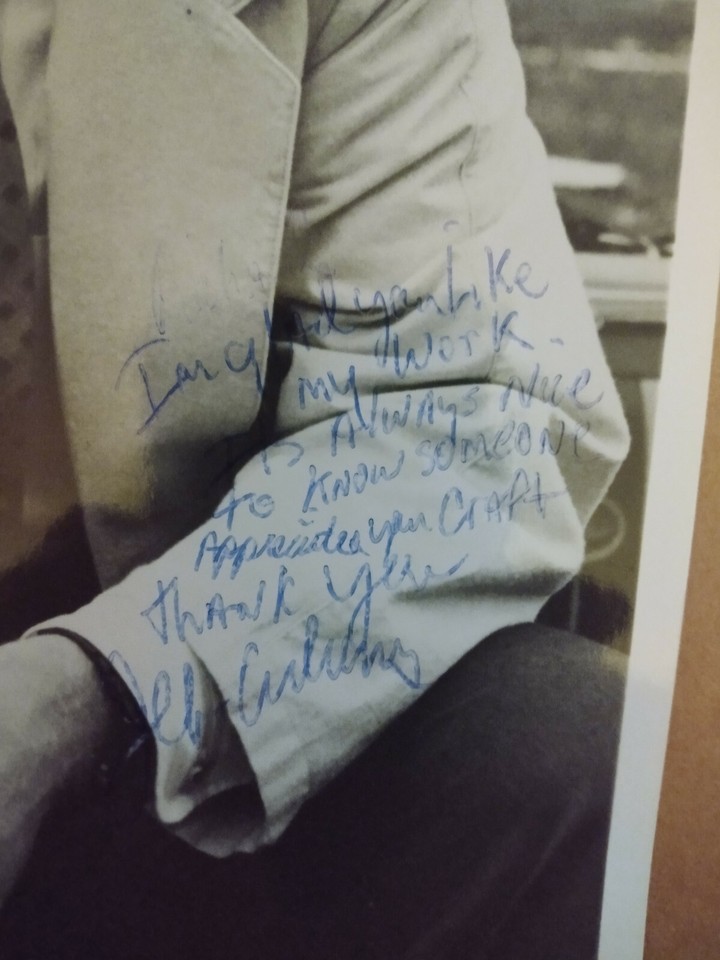 I am glad you Like
my Work.
Its Always Nice
to KNOW SOMEONE
Appreciates your CRAft
tHANK You